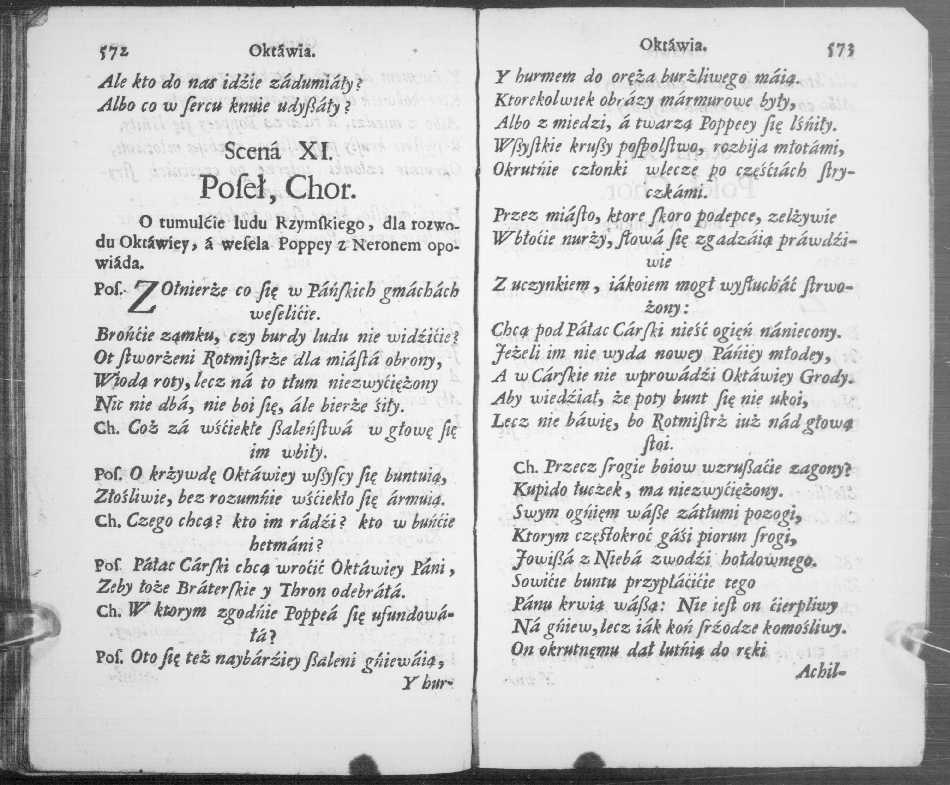 572 Oktáwia.
Ale kto do nas idźie zádumiáły?
Albo co w ſercu knuie udyßáły?
Scená XI.
Poſeł, Chor.
O tumulćie ludu Rzymſkiego, dla rozwo-
du Oktáwiey, á weſela Poppey z Neronem opo-
wiáda.
Poſ. ZOłnierże co ſię w Páńſkich gmáchách
weſelićie.
Brońćie ząmku, czy burdy ludu nie widźićie?
Ot ſtworżeni Rotmiſtrże dla miáſtá obrony,
Wiodą roty, lecz ná to tłum niezwyćiężony
Nic nie dbá, nie boi ſię, ále bierże śiły.
Ch. Coż zá wśćiekłe ßaleńſtwá w głowę ſię
im wbiły.
Poſ. O krżywdę Oktáwiey wſßyſcy ſię buntuią,
Złośliwie, bez rozumńie wśćiekło ſię ármuią.
Ch. Czego chcą? kto im rádźi? kto w buńćie
hetmáni?
Poſ. Páłac Cárſki chcą wroćić Oktáwiey Páni,
Zeby łoże Bráterſkie y Thron odebráłá.
Ch. W ktorym zgodńie Poppeá ſię ufundowá-
łá?
Poſ. Oto ſię też naybárźiey ßaleni gńiewáią,
Y hur-
Oktáwia. 573
Y hurmem do oręża burżliwego máią.
Ktorekolwiek obrázy mármurowe były,
Albo z miedzi, á twarzą Poppeey ſię lśńiły.
Wſßyſtkie krußy poſpolſtwo, rozbija młotámi,
Okrutńie członki wlecze po częśćiách ſtry-
czkámi.
Przez miáſto, ktore ſkoro podepce, zelżywie
Wbłoćie nurży, ſłowá ſię zgadzáią práwdźi-
wie
Z uczynkiem, iákoiem mogł wyſłucháć ſtrwo-
żony:
Chcą pod Páłac Cárſki nieść ogięń nániecony.
Jeżeli im nie wyda nowey Páńiey młodey,
A w Cárſkie nie wprowádźi Oktáwiey Grody.
Aby wiedźiał, że poty bunt ſię nie ukoi,
Lecz nie báwię, bo Rotmiſtrż iuż nád głową
ſtoi.
Ch. Przecz ſrogie boiow wzrußaćie zagony?
Kupido łuczek, ma niezwyćiężony.
Swym ogńięm wáße zátłumi pozogi,
Ktorym częſtokroć gáśi piorun ſrogi,
Jowißá z Niebá zwodźi hołdownego.
Sowićie buntu przypłáćićie tego
Pánu krwią wáßą: Nie ieſt on ćierpliwy
Ná gńiew, lecz iák koń ſrżodze komośliwy.
On okrutnęmu dał lutńią do ręki
Achil-